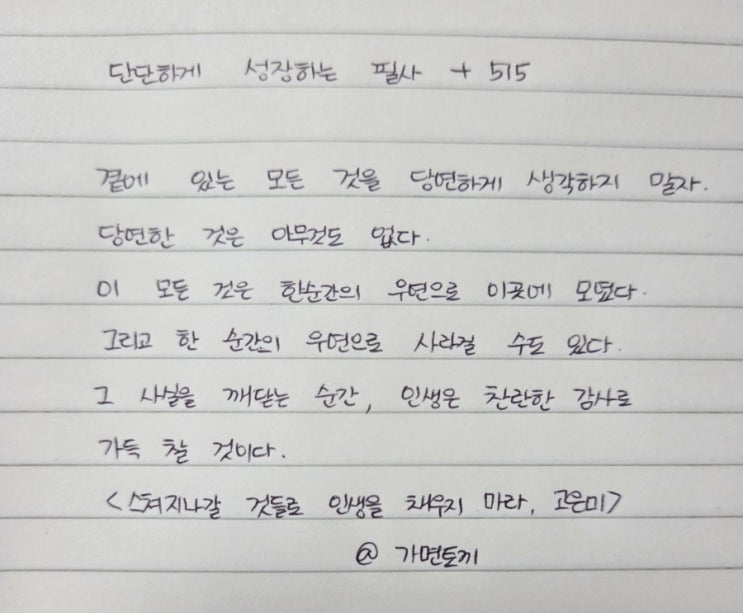 단단하게 성장하는 필사 + 515
곁에 있는 모든 것을 당연하게 생각하지 말자.
당연한 것은 아무것도 없다.
이 모든 것은 한순간의 우연으로 이곳에 모였다.
그리고 한 순간의 우연으로 사라질 수도 있다.
그 사실을 깨닫는 순간, 인생은 찬란한 감사로
가득 찰 것이다.
<스쳐지나갈 것들로 인생을 채우지 마라, 고은미>
@ 가면토끼